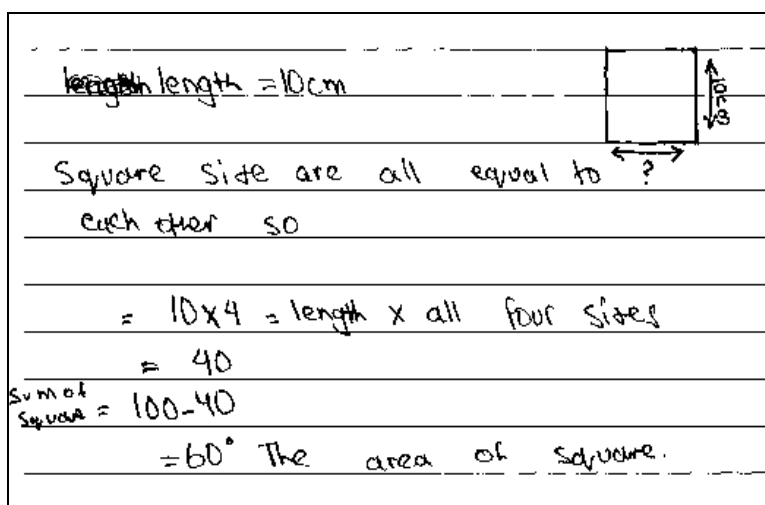 length length = 10cm
10cm
?
Square site are all equal to
each other so
= 10x4 = length x all four sites
= 40
sum of
square = 100-40
= 60° The area of square.